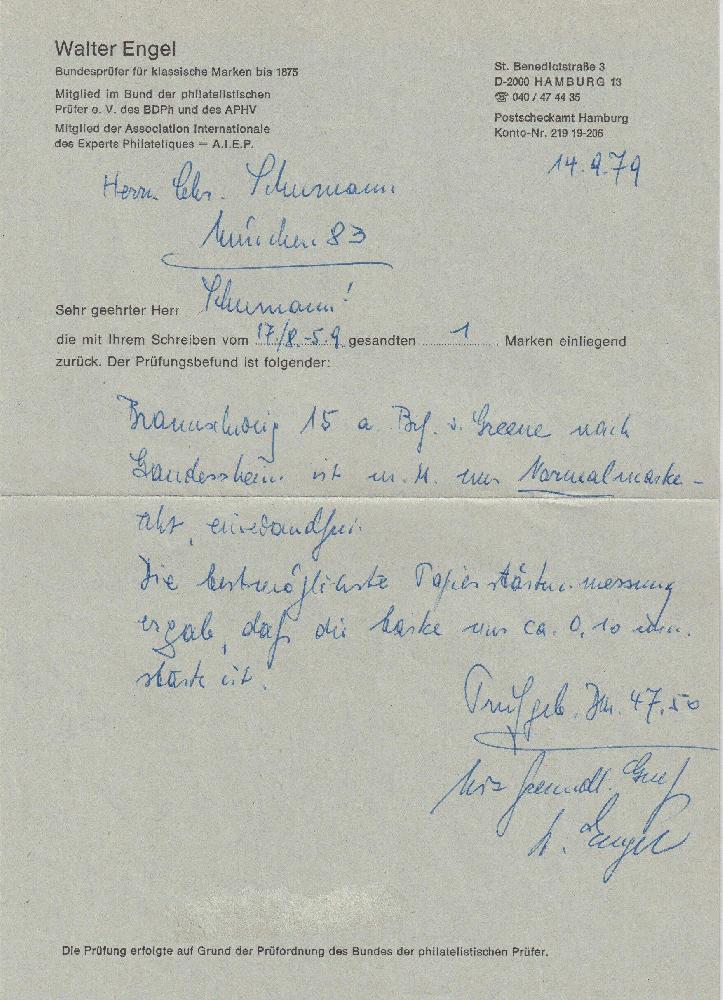 Walter Engel
Bundesprüfer für klassische Marken bis 1875
Mitglied im Bund der philatelistischen
Prüfer e. V. des BDPh und des APHV
Mitglied der Association Internationale
des Experts Philateliques — A.I.E.P.
St. Benedictstraße 3
D-2000 HAMBURG 13
☏ 040 / 47 44 35
Postscheckamt Hamburg
Konto-Nr. 219 19-206
14.9.79
Herrn Chr. Schumann
München 83
Sehr geehrter Herr Schumann!
die mit Ihrem Schreiben vom 17./8.-5.9 gesandten 1 Marken einliegend
zurück. Der Prüfungsbefund ist folgender:
Braunschweig 15 a Brf. v. Greene nach
Gandersheim ist m. M. nur Normalmarke -
echt, einwandfrei.
Die bestmöglichste Papierstärkenmessung
ergab, daß die Marke nur ca. 0,10 mm.
stark ist.
Prüfgeb. DM. 47,50
Mit freundl. Gruß
W. Engel
Die Prüfung erfolgte auf Grund der Prüfordnung des Bundes der philatelistischen Prüfer.